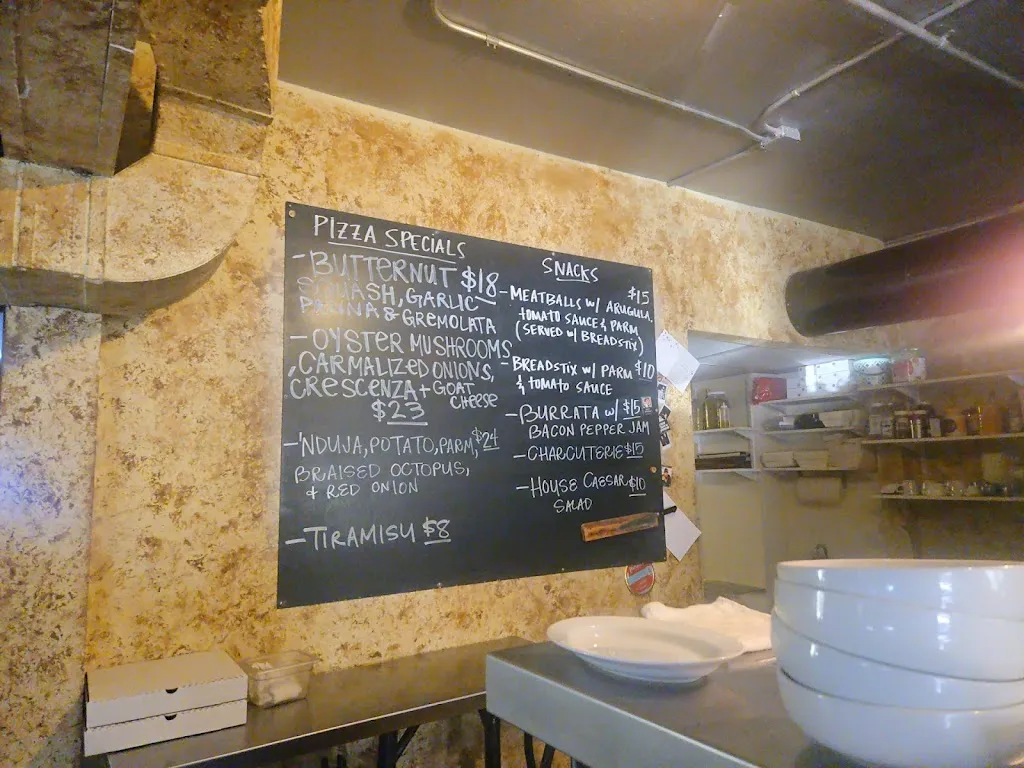 PIZZA SPECIALS
- BUTTERNUT $18
SQUASH, GARLIC
PANNA & GREMOLATA
- OYSTER MUSHROOMS
, CARMALIZED ONIONS,
CRESCENZA + GOAT
CHEESE
$23
- 'NDUJA, POTATO, PARM, $24
BRAISED OCTOPUS,
& RED ONION
- TIRAMISU $8
SNACKS
$15
- MEATBALLS w/ ARUGULA,
TOMATO SAUCE & PARM
(SERVED w/ BREADSTIX)
- BREADSTIX w/ PARM $10
& TOMATO SAUCE
- BURRATA w/ $15
BACON PEPPER JAM
- CHARCUTERIE $15
- HOUSE CAESAR $10
SALAD